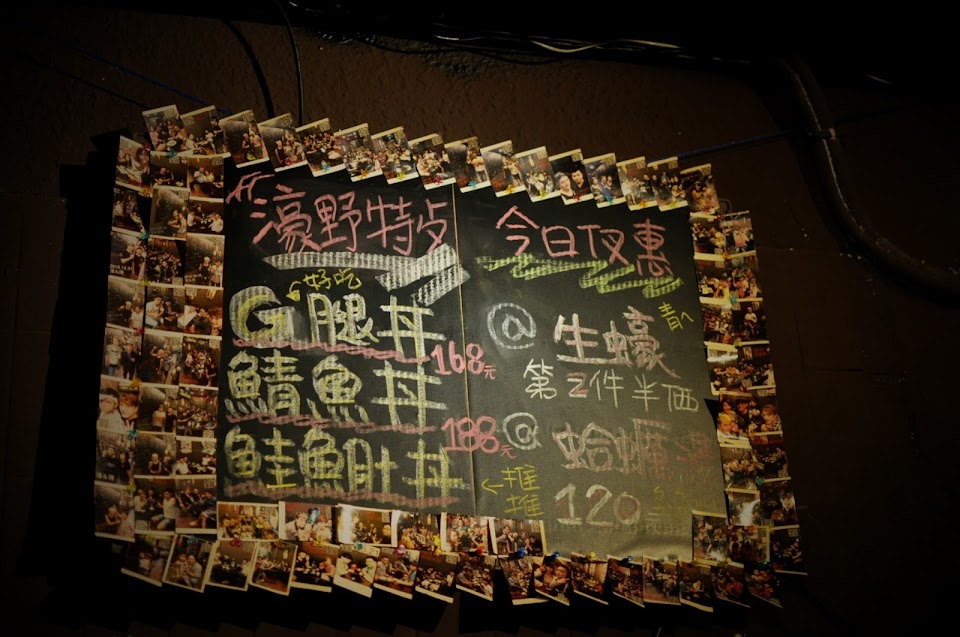 濠野特点
好吃
G腿丼
168元
鯖魚丼
188元
鮭魚肚丼
推推
今日 惠
@ 生蠔 青ㄟ
第2件半価
@ 蛤蠣湯
120